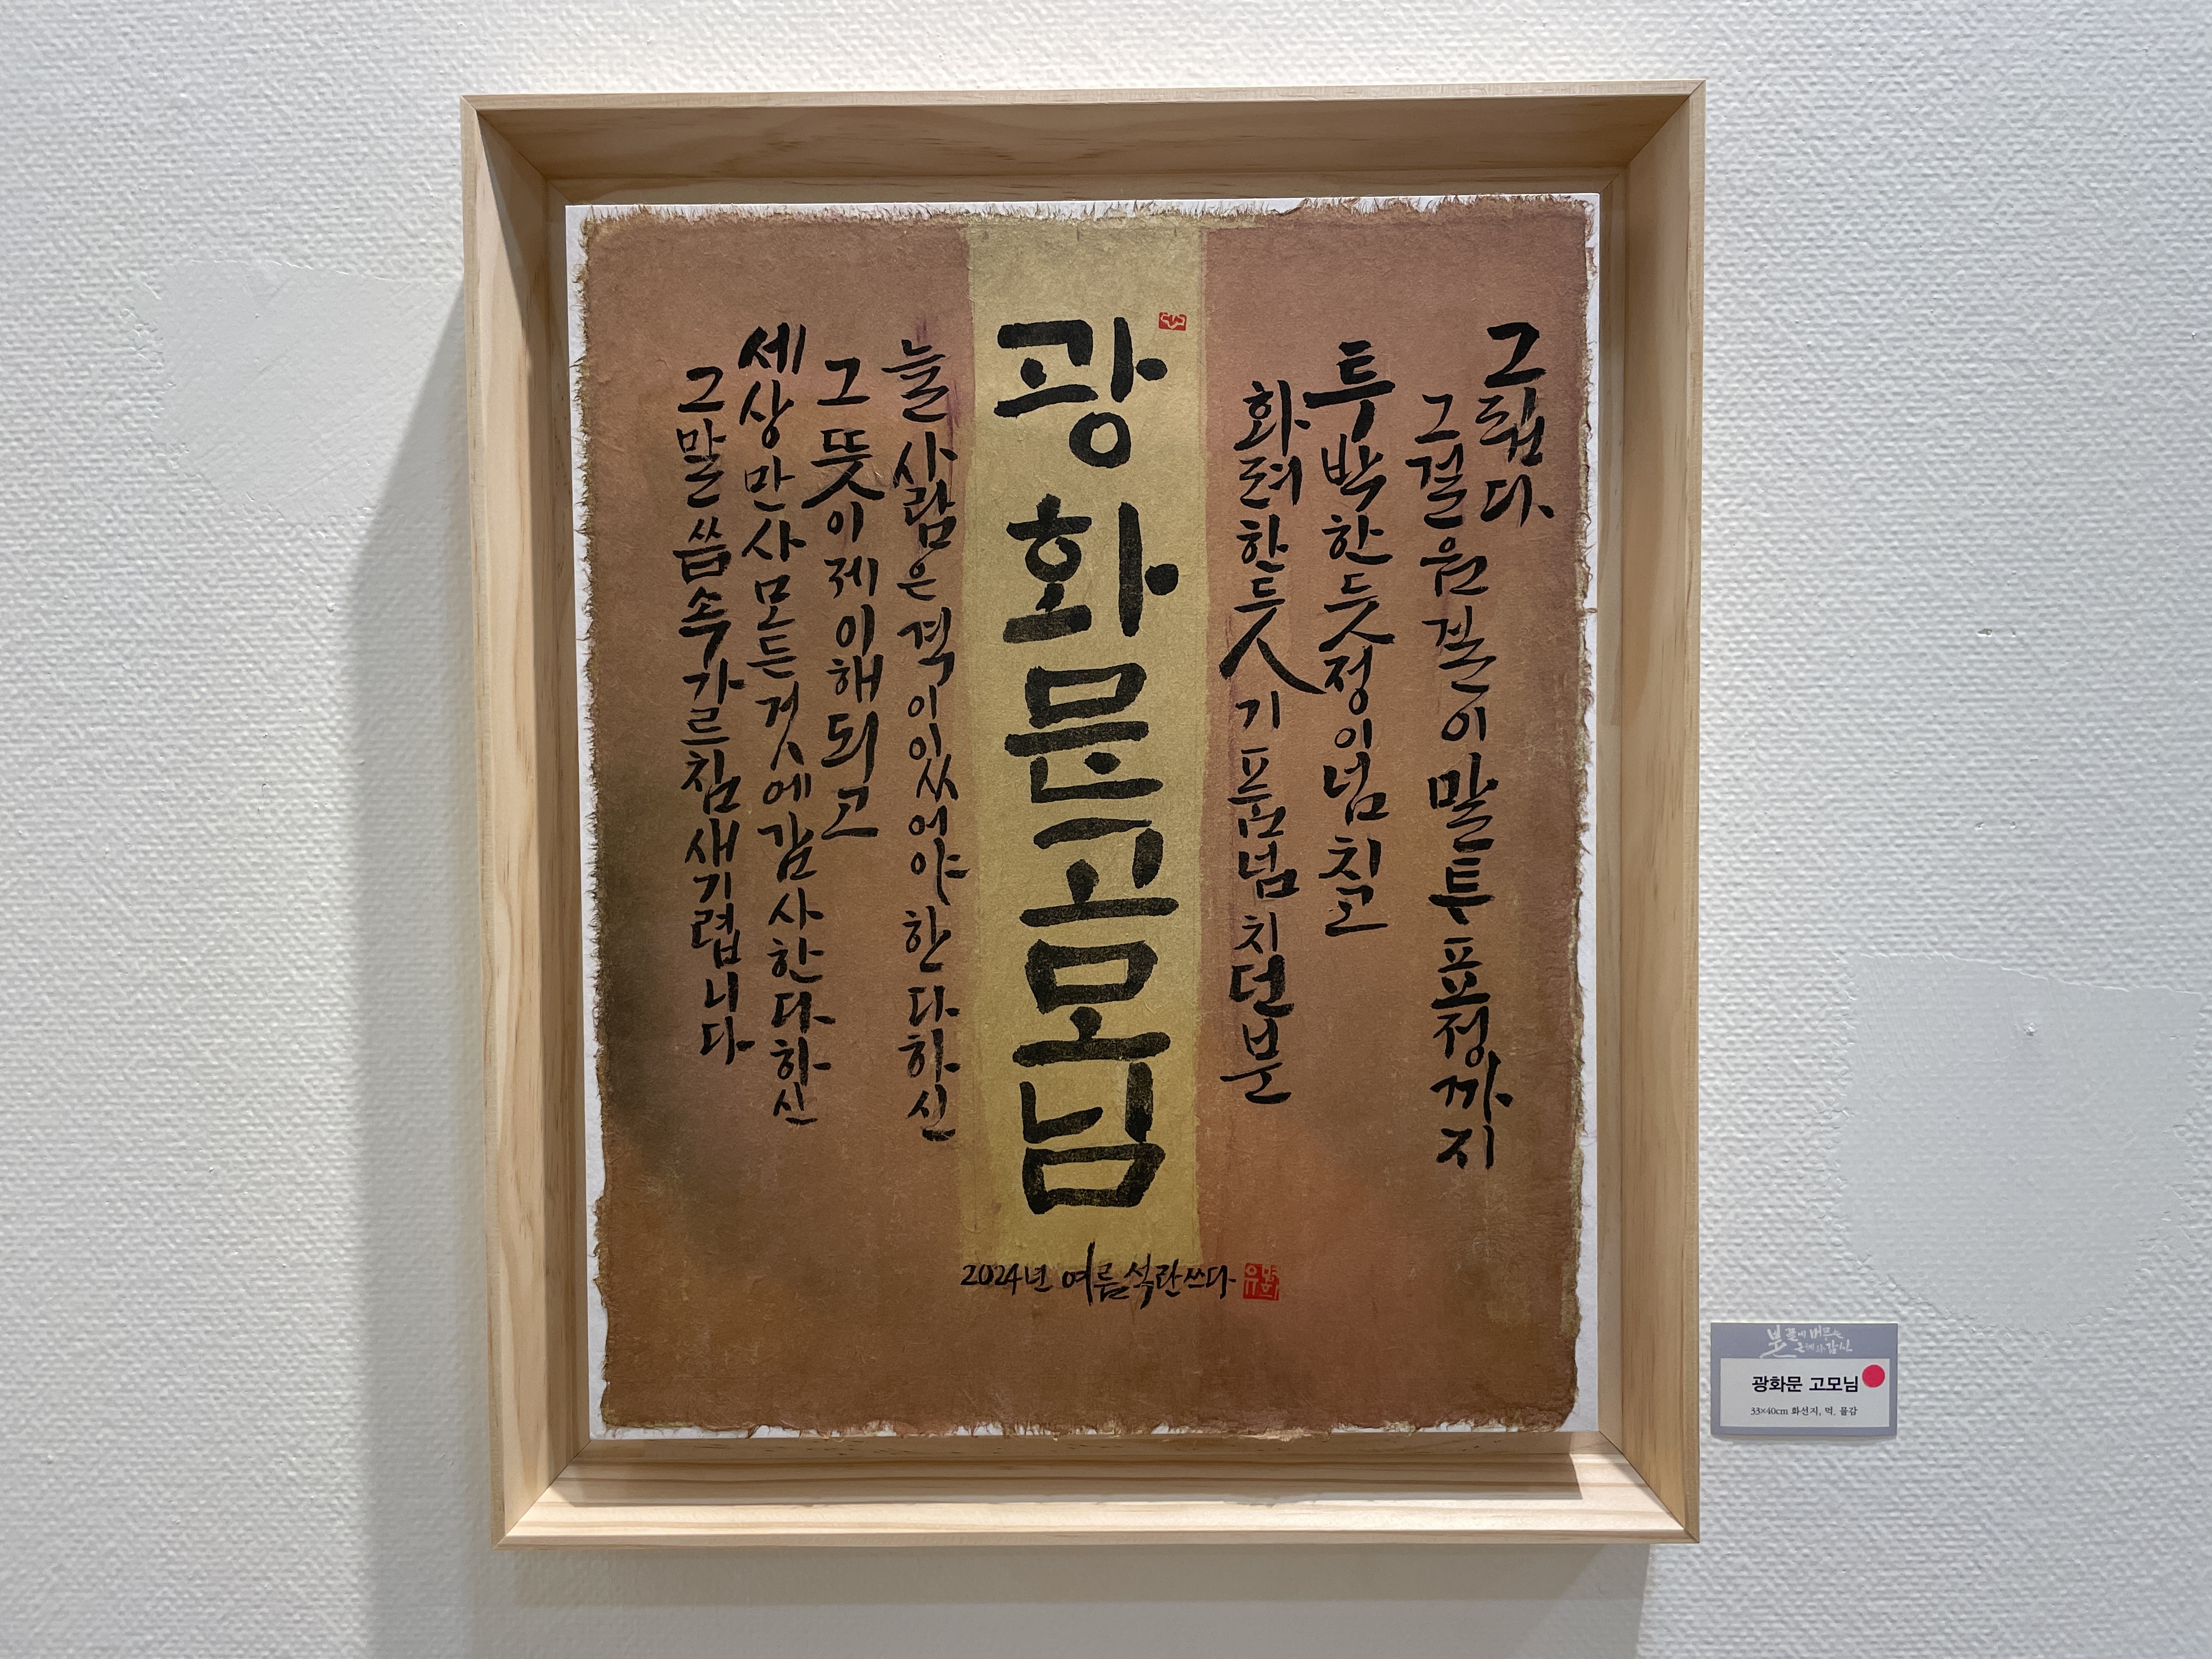 그립다
그 걸음걸이 말투 표정까지
투박한듯 정이 넘치고
화려한듯 기품 넘치던 분
광화문 고모님
늘 사람은 격이 있어야 한다 하신
그 뜻 이제 이해되고
세상만사 모든 것에 감사한다 하신
그 말씀 속 가르침 새기렵니다
2024년 여름 석란 쓰다
붓끝에 머무는
은혜와 감사
광화문 고모님
33×40cm 화선지, 먹, 물감